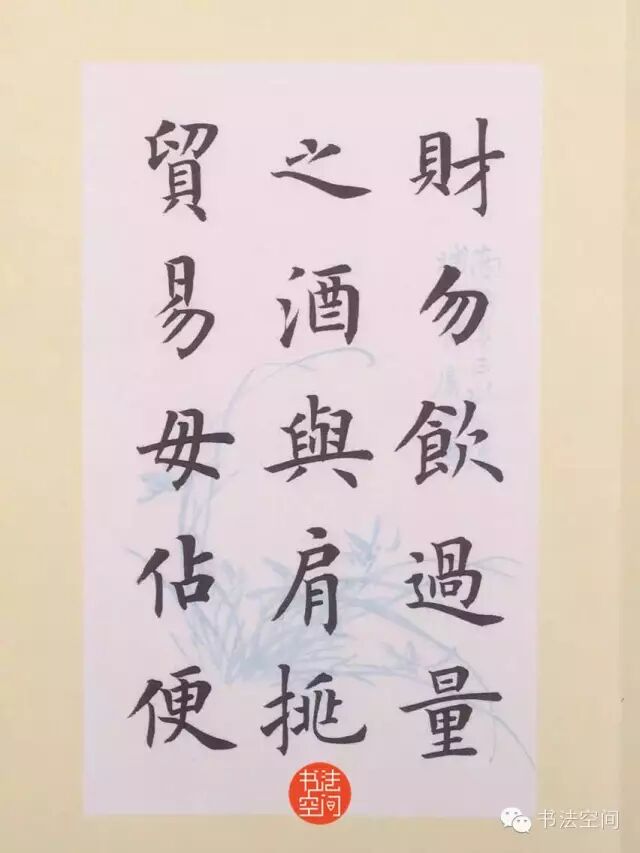 財勿飲過量
之酒與肩挑
貿易毋佔便
书法空间
书法空间